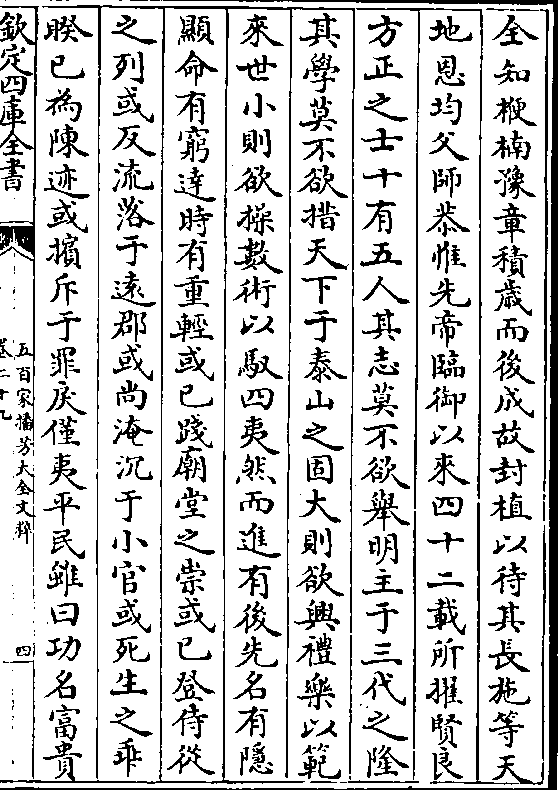 全知楩楠豫章積歳而後成故封植以待其長施等天
地恩均父師恭惟先帝臨御以來四十二載所擢賢良
方正之士十有五人其志莫不欲舉明主于三代之隆
其學莫不欲措天下于泰山之固大則欲興禮樂以範
來世小則欲操數術以馭四夷然而進有後先名有隱
顯命有窮達時有重輕或已踐廟堂之崇或已登侍從
之列或反流落于遠郡或尚淹沉于小官或死生之乖
暌已為陳迹或擯斥于罪戾僅夷平民雖曰功名富貴
欽定四庫全書
五百家播芳大全文粹
卷二十九
四